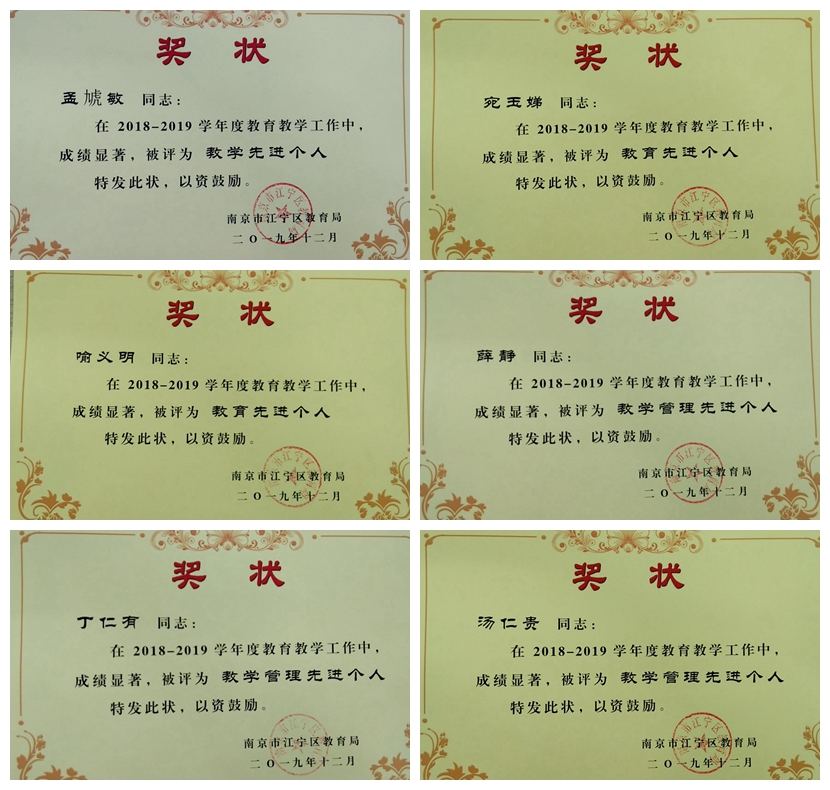 奖 状
孟虓敏 同志：
在 2018-2019 学年度教育教学工作中，
成绩显著，被评为 教学先进个人
特发此状，以资鼓励。
南京市江宁区教育局
二〇一九年十二月
奖 状
宛玉娣 同志：
在 2018-2019 学年度教育教学工作中，
成绩显著，被评为 教育先进个人
特发此状，以资鼓励。
南京市江宁区教育局
二〇一九年十二月
奖 状
喻义明 同志：
在 2018-2019 学年度教育教学工作中，
成绩显著，被评为 教育先进个人
特发此状，以资鼓励。
南京市江宁区教育局
二〇一九年十二月
奖 状
薛静 同志：
在 2018-2019 学年度教育教学工作中，
成绩显著，被评为 教学管理先进个人
特发此状，以资鼓励。
南京市江宁区教育局
二〇一九年十二月
奖 状
丁仁有 同志：
在 2018-2019 学年度教育教学工作中，
成绩显著，被评为 教学管理先进个人
特发此状，以资鼓励。
南京市江宁区教育局
二〇一九年十二月
奖 状
汤仁贵 同志：
在 2018-2019 学年度教育教学工作中，
成绩显著，被评为 教学管理先进个人
特发此状，以资鼓励。
南京市江宁区教育局
二〇一九年十二月